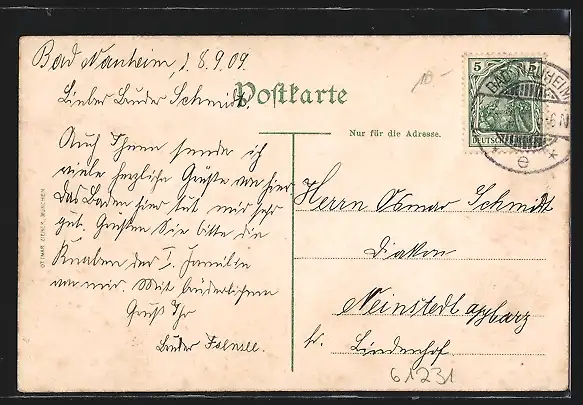 Bad Nauheim, 1.8.9.09.
Lieber Bruder Schmidt,
Postkarte
Nur für die Adresse.
Auch Ihnen sende ich
viele herzliche Grüße von hier
das Baden hier tut mir sehr
gut. Grüßen Sie bitte die
Knaben der I. Familie
von mir. Mit brüderlichem
Gruß Ihr
Bruder
Herrn Osmar Schmidt
Diakon
Neinstedt a/Harz
Lindenhof
61231
10-
5
DEUTSCHES
BAD NAUHEIM
e
OTTMAR ZIEHER, MÜNCHEN